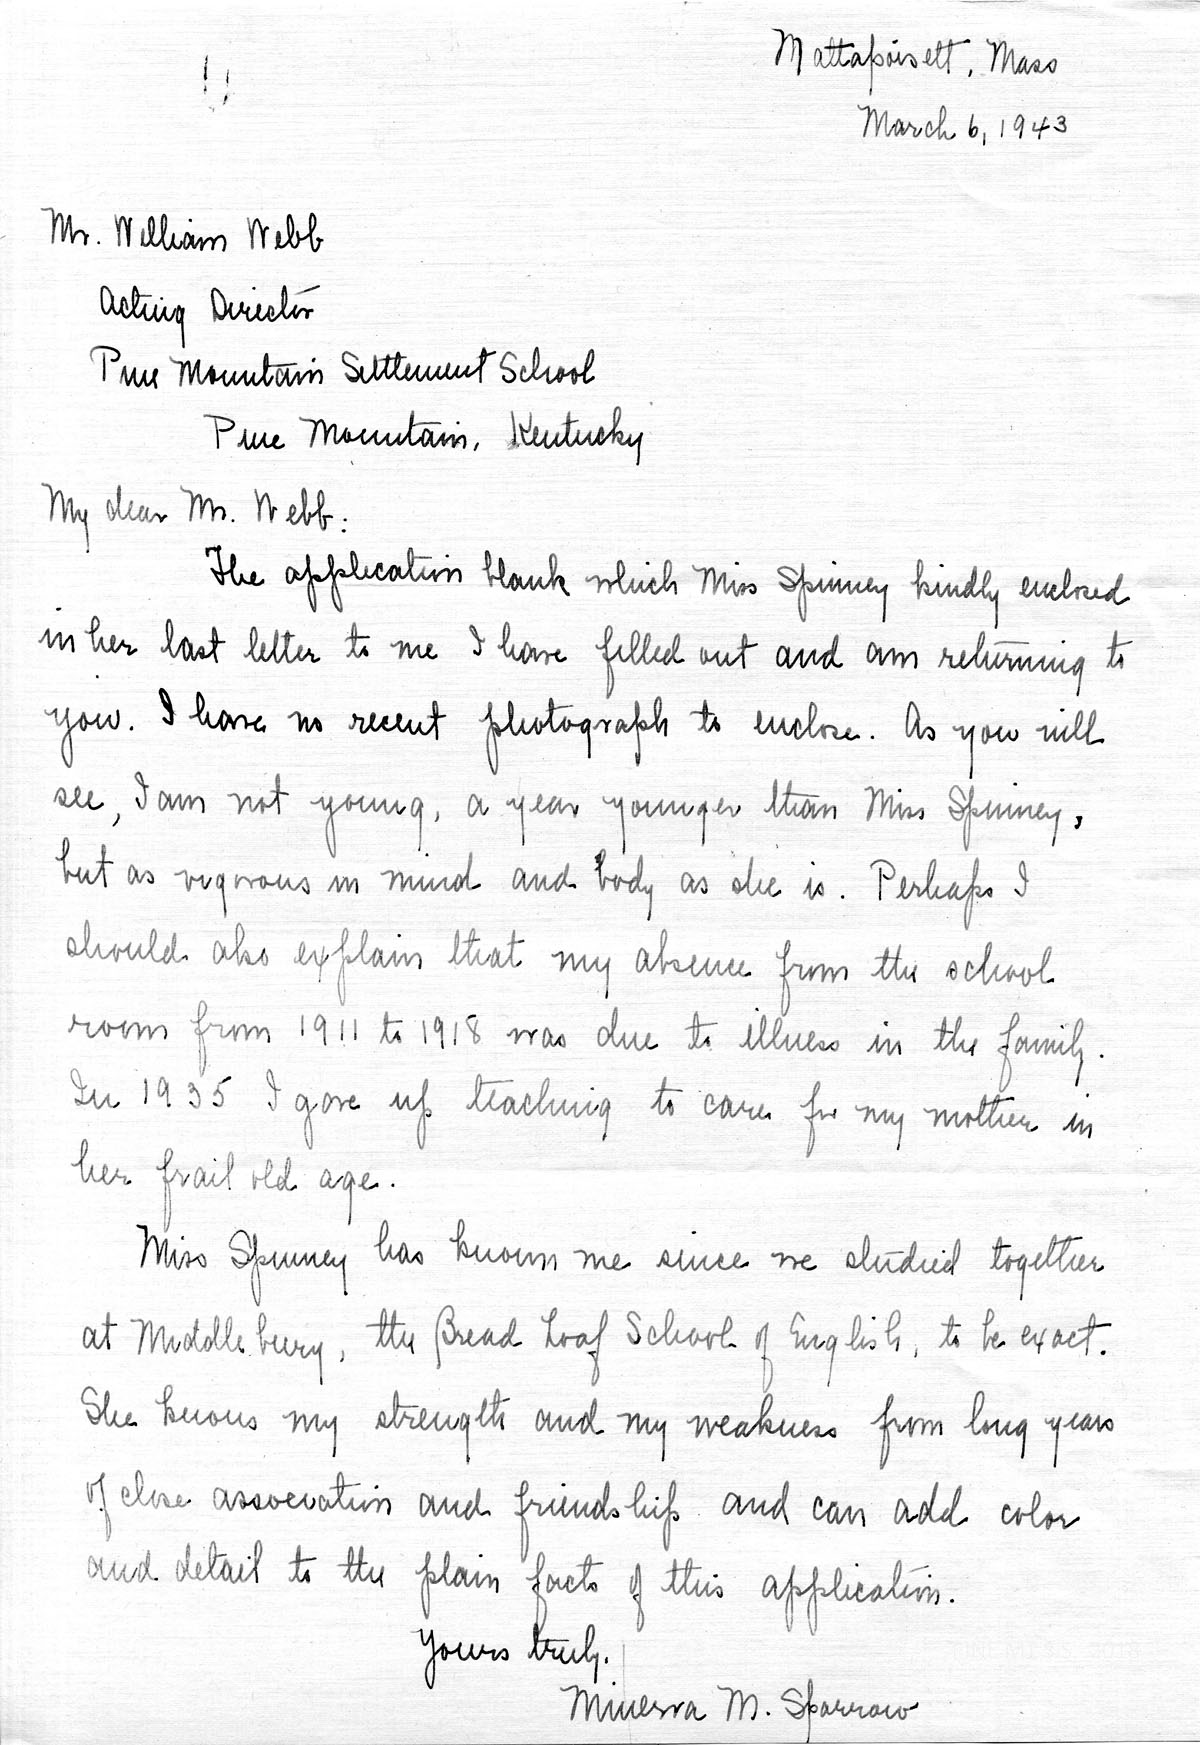 Mattapoisett, Mass
March 6, 1943
Mr. William Webb
Acting Director
Pine Mountain Settlement School
Pine Mountain, Kentucky
My dear Mr. Webb:
The application blank which Miss Spinney kindly enclosed
in her last letter to me I have filled out and am returning to
you. I have no recent photograph to enclose. As you will
see, I am not young, a year younger than Miss Spinney,
but as vigorous in mind and body as she is. Perhaps I
should also explain that my absence from the school
room from 1911 to 1918 was due to illness in the family.
In 1935 I gave up teaching to care for my mother in
her frail old age.
Miss Spinney has known me since we studied together
at Middlebury, the Bread Loaf School of English, to be exact.
She knows my strength and my weakness from long years
of close association and friendship and can add color
and detail to the plain facts of this application.
Yours truly.
Minerva M. Sparrow